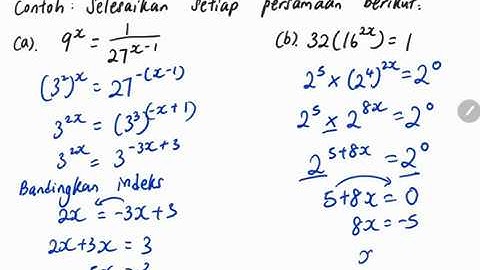 Contoh: Selesaikan setiap persamaan berikut:
(a). 9^x = 1/27^(x-1)
(3²)^x = 27^-(x-1)
3^2x = (3³)^(-x+1)
3^2x = 3^(-3x+3)
Bandingkan indeks
2x = -3x+3
2x+3x = 3
(b). 32(16^2x) = 1
2⁵ × (2⁴)^2x = 2⁰
2⁵ × 2^8x = 2⁰
2^(5+8x) = 2⁰
5+8x = 0
8x = -5
x